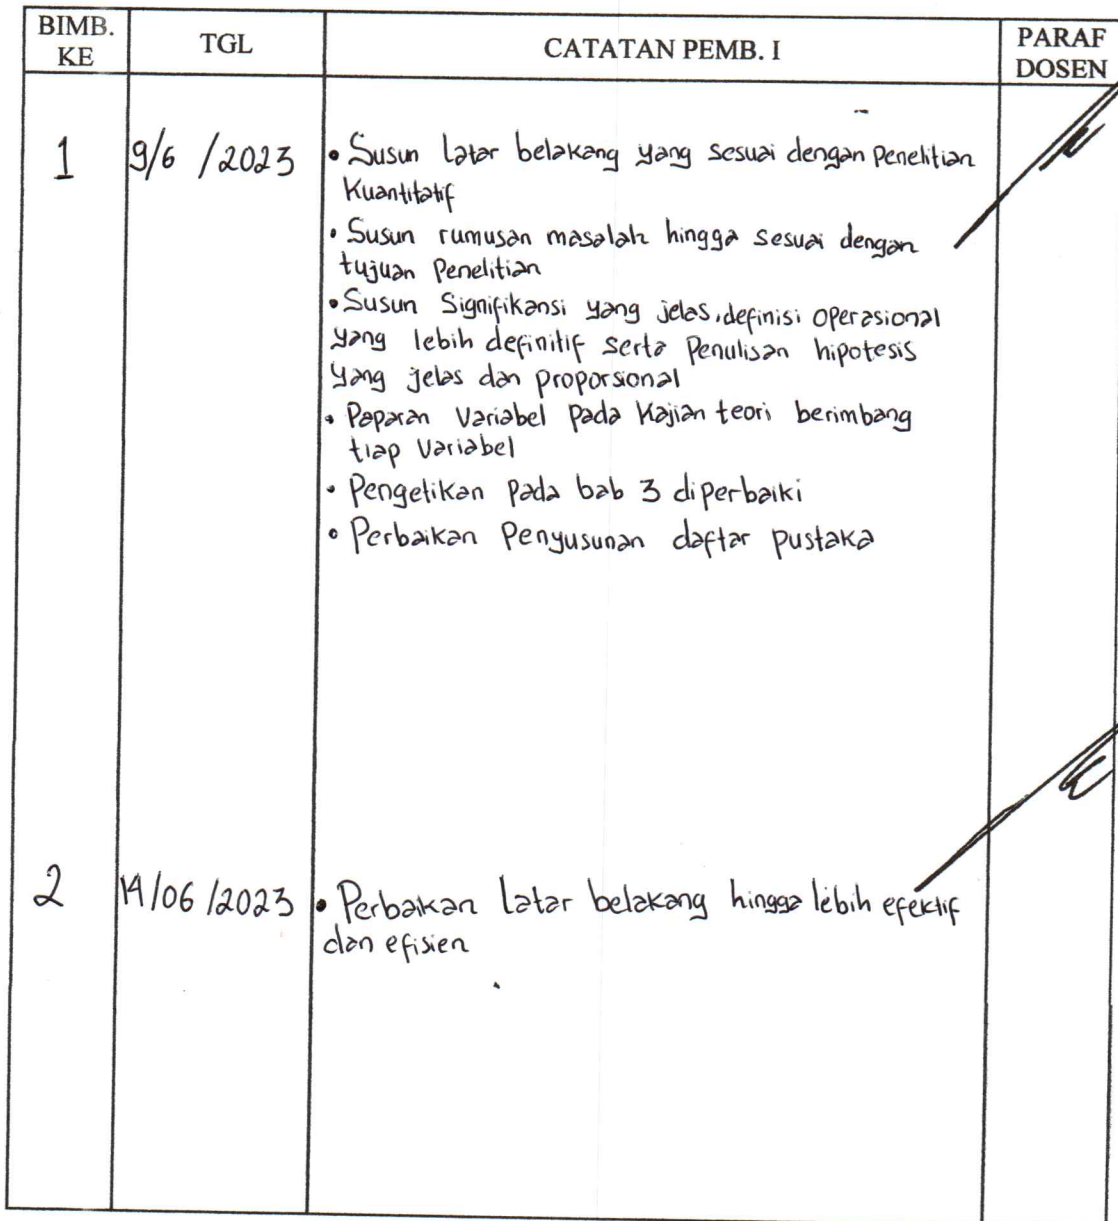 BIMB. KE TGL CATATAN PEMB. I PARAF DOSEN
1 9/6 /2023 • Susun latar belakang yang sesuai dengan Penelitian
Kuantitatif
• Susun rumusan masalah hingga sesuai dengan
tujuan Penelitian
• Susun Signifikansi yang jelas, definisi operasional
yang lebih definitif serta Penulisan hipotesis
yang jelas dan proporsional
• Paparan Variabel pada Kajian teori berimbang
tiap Variabel
• Pengetikan pada bab 3 diperbaiki
• Perbaikan Penyusunan daftar pustaka
2 14/06 /2023 • Perbaikan latar belakang hingga lebih efektif
dan efisien